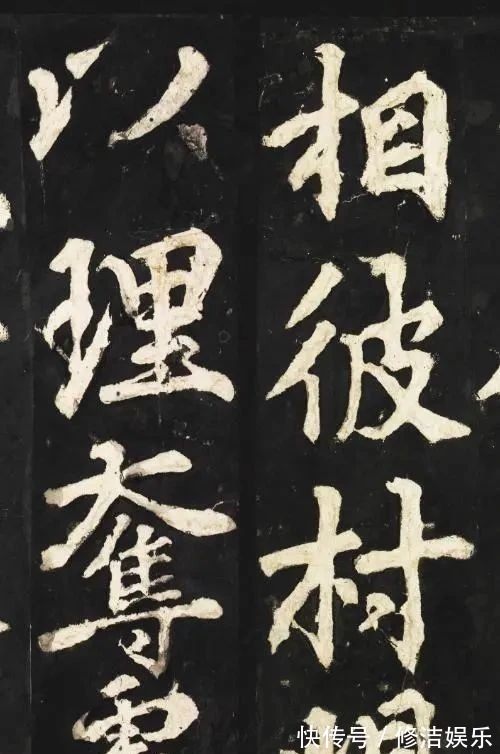 相彼村
以理奪
快传号 / 修洁娱乐